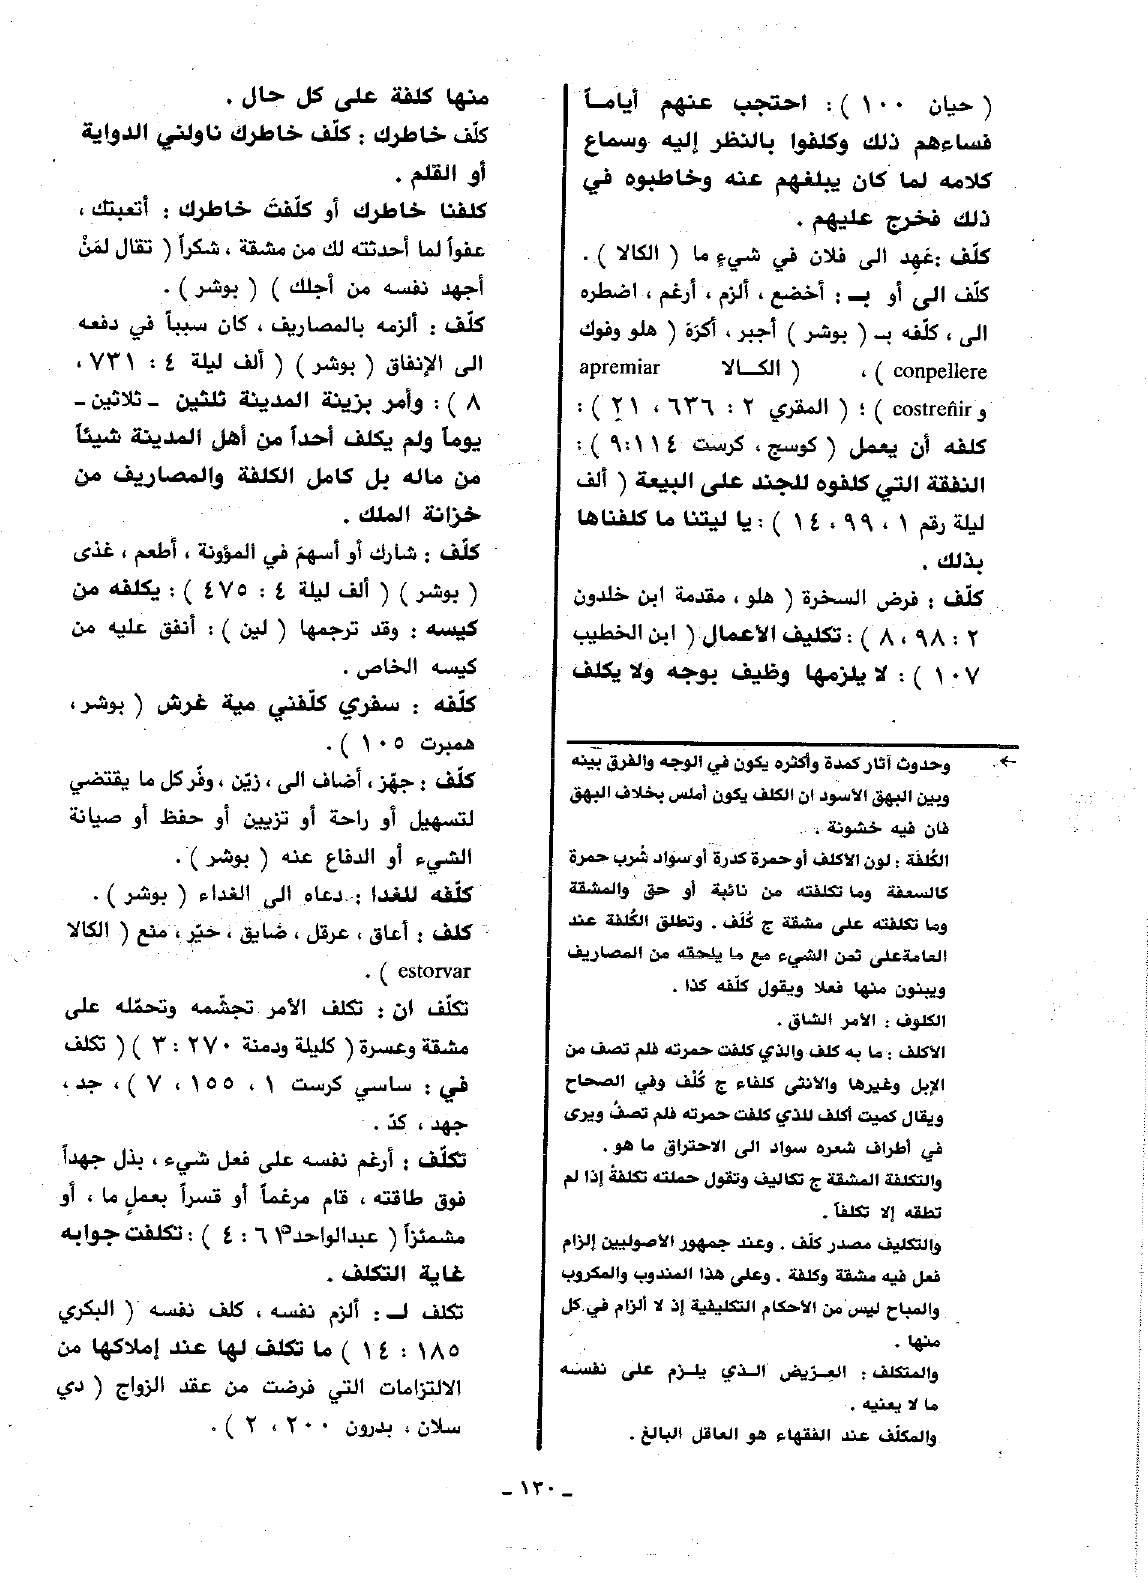 ( حيان ١٠٠ ) : احتجب عنهم أياماً
فساءهم ذلك وكلفوا بالنظر إليه وسماع
كلامه لما كان يبلغهم عنه وخاطبوه في
ذلك فخرج عليهم .
كلّف :عَهِد الى فلان في شيءٍ ما ( الكالا ) .
كلّف الى أو بـ : أخضع ، ألزم ، أرغم ، اضطره
الى ، كلّفه بـ ( بوشر ) أجبر ، أكرَهَ ( هلو وفوك
conpellere ) ، ( الكـالا apremiar
و costreñir ) ؛ ( المقري ٢ : ٦٣٦ ، ٢١ ) :
كلفه أن يعمل ( كوسج ، كرست ٩:١١٤ ) :
النفقة التي كلفوه للجند على البيعة ( ألف
ليلة رقم ١ ، ٩٩ ، ١٤ ) : يا ليتنا ما كلفناها
بذلك .
كلّف : فرض السخرة ( هلو ، مقدمة ابن خلدون
٢ : ٩٨ ، ٨ ) : تكليف الأعمال ( ابن الخطيب
١٠٧ ) : لا يلزمها وظيف بوجه ولا يكلف
← وحدوث آثار كمدة وأكثره يكون في الوجه والفرق بينه
وبين البهق الأسود ان الكلف يكون أملس بخلاف البهق
فان فيه خشونة .
الكُلفة : لون الأكلف أو حمرة كدرة أو سواد شُرب حمرة
كالسعفة وما تكلفته من نائبة أو حق والمشقة
وما تكلفته على مشقة ج كُلَف . وتطلق الكُلفة عند
العامة على ثمن الشيء مع ما يلحقه من المصاريف
ويبنون منها فعلا ويقول كلّفه كذا .
الكلوف : الأمر الشاق .
الأكلف : ما به كلف والذي كلفت حمرته فلم تصف من
الإبل وغيرها والأنثى كلفاء ج كُلْف وفي الصحاح
ويقال كميت أكلف للذي كلفت حمرته فلم تصفُ ويرى
في أطراف شعره سواد الى الاحتراق ما هو .
والتكلفة المشقة ج تكاليف وتقول حملته تكلفةً إذا لم
تطقه إلا تكلفاً .
والتكليف مصدر كلّف . وعند جمهور الأصوليين إلزام
فعل فيه مشقة وكلفة . وعلى هذا المندوب والمكروب
والمباح ليس من الأحكام التكليفية إذ لا ألزام في كل
منها .
والمتكلف : العرّيض الـذي يلـزم على نفسـه
ما لا يعنيه .
والمكلّف عند الفقهاء هو العاقل البالغ .
منها كلفة على كل حال .
كلّف خاطرك : كلّف خاطرك ناولني الدواية
أو القلم .
كلفنا خاطرك أو كلّفتَ خاطرك : أتعبتك ،
عفواً لما أحدثته لك من مشقة ، شكراً ( تقال لمَنْ
أجهد نفسه من أجلك ) ( بوشر ) .
كلّف : ألزمه بالمصاريف ، كان سبباً في دفعه
الى الإنفاق ( بوشر ) ( ألف ليلة ٤ : ٧٣١ ،
٨ ) : وأمر بزينة المدينة ثلثين ـ ثلاثين ـ
يوماً ولم يكلف أحداً من أهل المدينة شيئاً
من ماله بل كامل الكلفة والمصاريف من
خزانة الملك .
كلّف : شارك أو أسهمَ في المؤونة ، أطعم ، غذى
( بوشر ) ( ألف ليلة ٤ : ٤٧٥ ) : يكلفه من
كيسه : وقد ترجمها ( لين ) : أنفق عليه من
كيسه الخاص .
كلّفه : سفري كلّفني مية غرش ( بوشر ،
همبرت ١٠٥ ) .
كلّف : جهّز ، أضاف الى ، زيّن ، وفّر كل ما يقتضي
لتسهيل أو راحة أو تزيين أو حفظ أو صيانة
الشيء أو الدفاع عنه ( بوشر ) .
كلّفه للغدا : دعاه الى الغداء ( بوشر ) .
كلف : أعاق ، عرقل ، ضايق ، حيّر ، منع ( الكالا
estorvar ) .
تكلّف ان : تكلف الأمر تجشّمه وتحمّله على
مشقة وعسرة ( كليلة ودمنة ٢٧٠ : ٣ ) ( تكلف
في : ساسي كرست ١ ، ١٥٥ ، ٧ ) ، جد ،
جهد ، كدّ .
تكلّف : أرغم نفسه على فعل شيء ، بذل جهداً
فوق طاقته ، قام مرغماً أو قسراً بعملٍ ما ، أو
مشمئزاً ( عبدالواحد : ٤ ) : تكلفت جوابه
غاية التكلف .
تكلف لـ : ألزم نفسه ، كلف نفسه ( البكري
١٨٥ : ١٤ ) ما تكلف لها عند إملاكها من
الالتزامات التي فرضت من عقد الزواج ( دي
سلان ، بدرون ٢٠٠ ، ٢ ) .
ـ ١٣٠ ـ